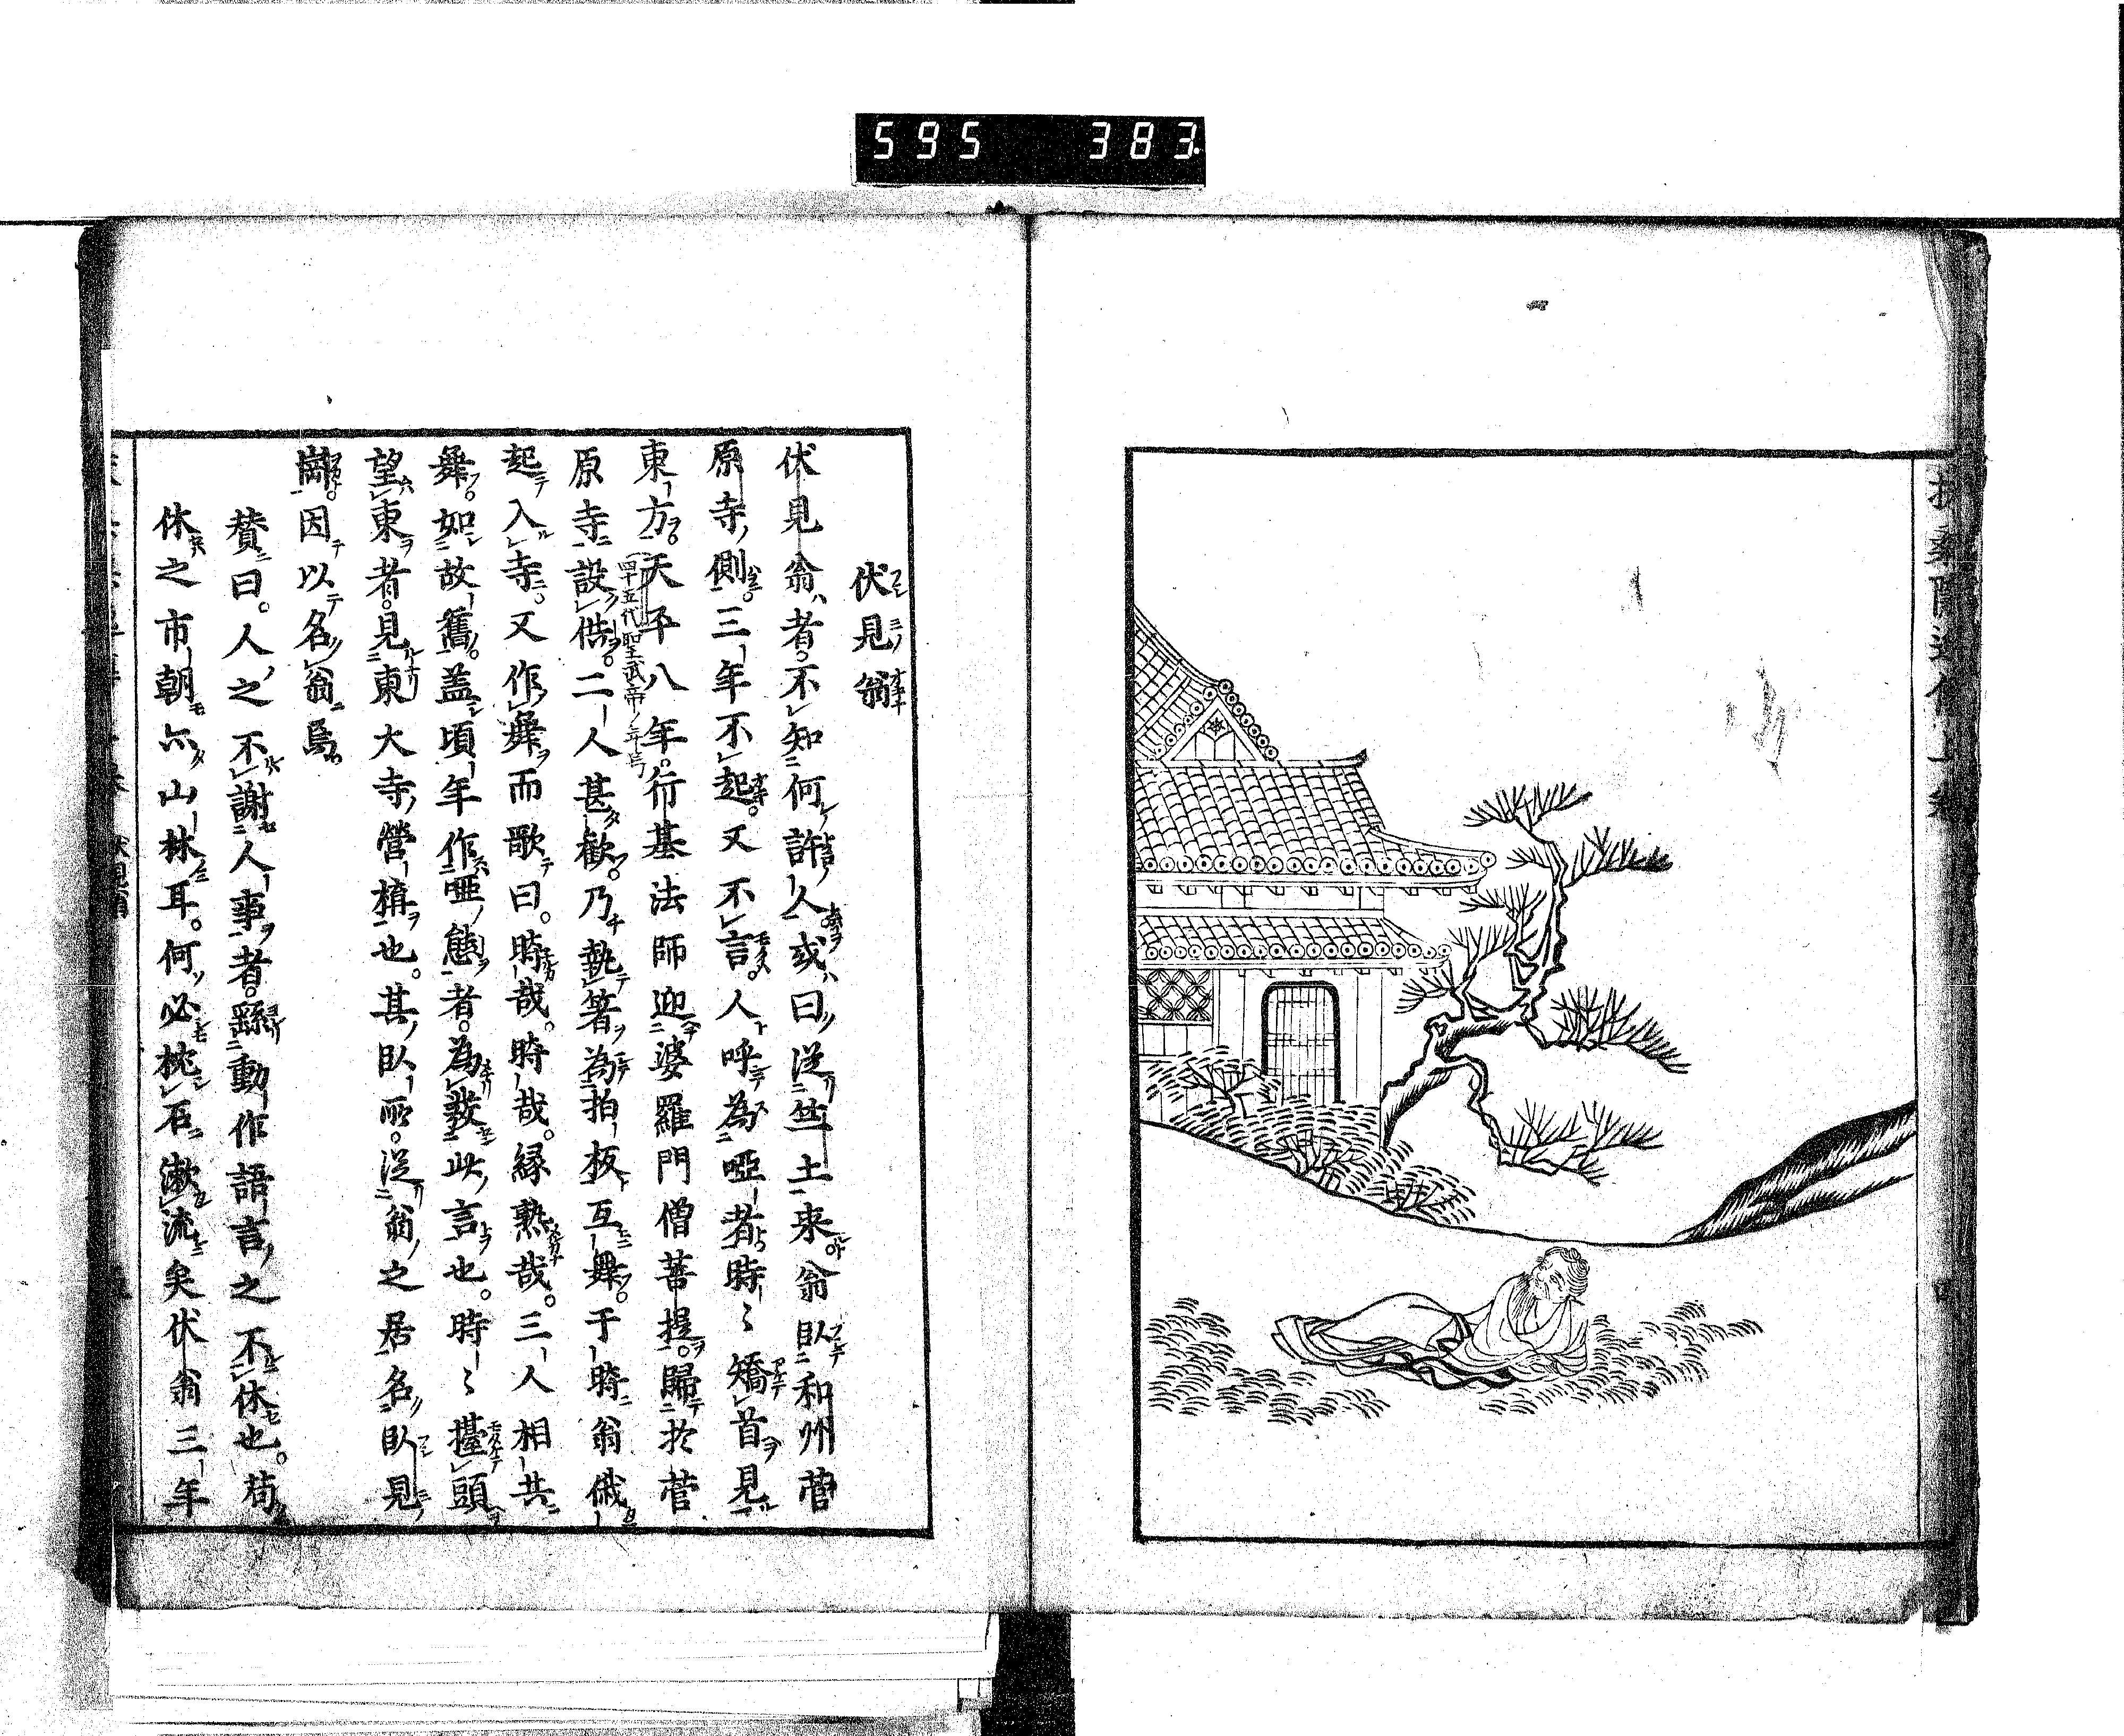 595 383
扶桑隱逸傳上卷
四
伏見翁
伏見翁者。不知何許人。或曰。從竺土来。翁臥和州菅
原寺側。三年不起。又不言。人呼為啞者。時〻矯首見
東方。天平八年。行基法師迎婆羅門僧菩提。歸於菅
四十五代聖武帝ノ年号
原寺設供。二人甚歡。乃執箸為拍板互舞。于時翁俄
起入寺。又作舞而歌曰。時哉。時哉。縁熟哉。三人相共
舞。如故舊。盖頃年作啞態者。為發此言也。時〻擡頭
望東者。見東大寺營構也。其臥所。從翁之居名臥見
崗。因以名翁焉
賛曰。人之不謝人事者。繇動作語言之不休也。苟
休之市朝亦山林耳。何必枕石漱流矣伏翁三年
伏見翁